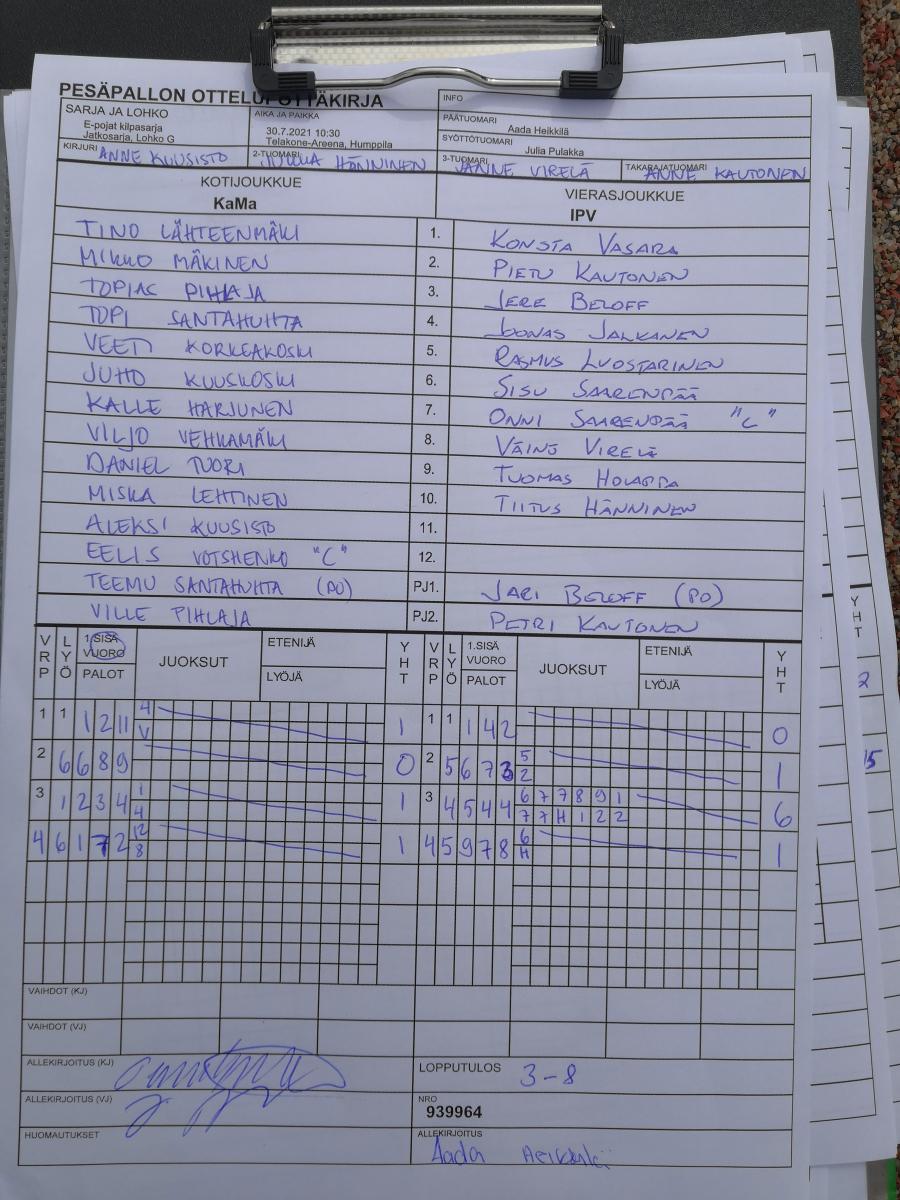 PESÄPALLON OTTELUPÖYTÄKIRJA
SARJA JA LOHKO
E-pojat kilpasarja
Jatkosarja, Lohko G
AIKA JA PAIKKA
30.7.2021 10:30
Telakone-Areena, Humppila
INFO
PÄÄTUOMARI
Aada Heikkilä
SYÖTTÖTUOMARI
Julia Pulakka
KIRJURI ANNE KUUSISTO
2-TUOMARI JUKKA HÄNNINEN
3-TUOMARI JANNE VIRELÄ
TAKARAJATUOMARI ANNE KAUTONEN
KOTIJOUKKUE
KaMa
VIERASJOUKKUE
IPV
TINO LÄHTEENMÄKI 1. KONSTA VASARA
MIKKO MÄKINEN 2. PIETU KAUTONEN
TOPIAS PIHLAJA 3. JERE BELOFF
TOPI SANTAHUHTA 4. JOONAS JALKANEN
VEETI KORKEAKOSKI 5. RASMUS LUOSTARINEN
JUHO KUUSKOSKI 6. SISU SAARENPÄÄ
KALLE HARJUNEN 7. ONNI SAARENPÄÄ "C"
VILJO VEHKAMÄKI 8. VÄINÖ VIRELÄ
DANIEL TUORI 9. TUOMAS HOLAPPA
MISKA LEHTINEN 10. TIITUS HÄNNINEN
ALEKSI KUUSISTO 11.
EELIS VOTSHENKO "C" 12.
TEEMU SANTAHUHTA (PO) PJ1. JARI BELOFF (PO)
VILLE PIHLAJA PJ2. PETRI KAUTONEN
VRP LYÖ 1.SISÄ VUORO PALOT JUOKSUT ETENIJÄ LYÖJÄ YHT VRP LYÖ 1.SISÄ VUORO PALOT JUOKSUT ETENIJÄ LYÖJÄ YHT
1 1 1 2 11 4 V 1 1 1 1 4 2 0
2 6 6 8 9 0 2 5 6 7 3 5 2 1
3 1 2 3 4 1 4 1 3 4 5 4 4 6 7 7 8 9 1 7 7 H 1 2 2 6
4 6 1 7 2 12 8 1 4 5 9 7 8 6 H 1
VAIHDOT (KJ)
VAIHDOT (VJ)
ALLEKIRJOITUS (KJ)
LOPPUTULOS 3-8
ALLEKIRJOITUS (VJ)
NRO
939964
HUOMAUTUKSET
ALLEKIRJOITUS
Aada Heikkilä
YHT
2
15